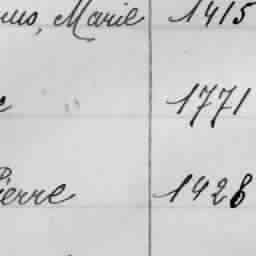 Marie 1415
1771
Pierre 1428